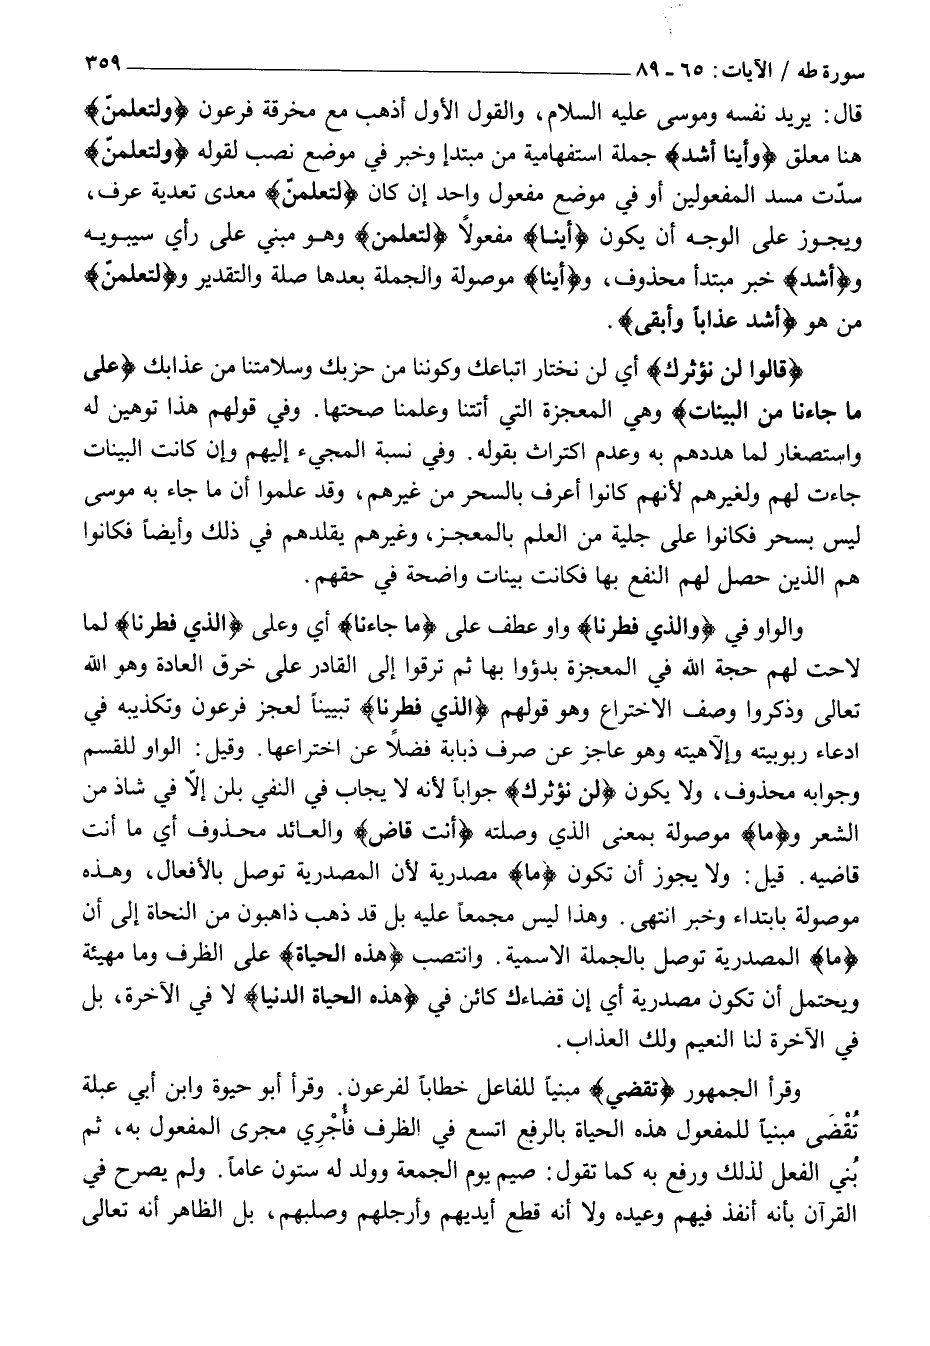 سورة طه / الآيات : ٦٥ - ٨٩ ٣٥٩
قال : يريد نفسه وموسى عليه السلام، والقول الأول أذهب مع مخرقة فرعون ﴿ولتعلمنّ﴾
هنا معلق ﴿وأينا أشد﴾ جملة استفهامية من مبتدإ وخبر في موضع نصب لقوله ﴿ولتعلمنّ﴾
سدّت مسد المفعولين أو في موضع مفعول واحد إن كان ﴿لتعلمنّ﴾ معدى تعدية عرف،
ويجوز على الوجه أن يكون ﴿أينا﴾ مفعولاً ﴿لتعلمن﴾ وهو مبني على رأي سيبويه
و﴿أشد﴾ خبر مبتدأ محذوف، و﴿أينا﴾ موصولة والجملة بعدها صلة والتقدير و﴿لتعلمنّ﴾
من هو ﴿أشد عذاباً وأبقى﴾.
﴿قالوا لن نؤثرك﴾ أي لن نختار اتباعك وكوننا من حزبك وسلامتنا من عذابك ﴿على
ما جاءنا من البينات﴾ وهي المعجزة التي أتتنا وعلمنا صحتها. وفي قولهم هذا توهين له
واستصغار لما هددهم به وعدم اكتراث بقوله. وفي نسبة المجيء إليهم وإن كانت البينات
جاءت لهم ولغيرهم لأنهم كانوا أعرف بالسحر من غيرهم، وقد علموا أن ما جاء به موسى
ليس بسحر فكانوا على جلية من العلم بالمعجز، وغيرهم يقلدهم في ذلك وأيضاً فكانوا
هم الذين حصل لهم النفع بها فكانت بينات واضحة في حقهم.
والواو في ﴿والذي فطرنا﴾ واو عطف على ﴿ما جاءنا﴾ أي وعلى ﴿الذي فطرنا﴾ لما
لاحت لهم حجة الله في المعجزة بدؤوا بها ثم ترقوا إلى القادر على خرق العادة وهو الله
تعالى وذكروا وصف الاختراع وهو قولهم ﴿الذي فطرنا﴾ تبييناً لعجز فرعون وتكذيبه في
ادعاء ربوبيته وإلاهيته وهو عاجز عن صرف ذبابة فضلاً عن اختراعها. وقيل : الواو للقسم
وجوابه محذوف، ولا يكون ﴿لن نؤثرك﴾ جواباً لأنه لا يجاب في النفي بلن إلاّ في شاذ من
الشعر و﴿ما﴾ موصولة بمعنى الذي وصلته ﴿أنت قاض﴾ والعائد محذوف أي ما أنت
قاضيه. قيل : ولا يجوز أن تكون ﴿ما﴾ مصدرية لأن المصدرية توصل بالأفعال، وهذه
موصولة بابتداء وخبر انتهى. وهذا ليس مجمعاً عليه بل قد ذهب ذاهبون من النحاة إلى أن
﴿ما﴾ المصدرية توصل بالجملة الاسمية. وانتصب ﴿هذه الحياة﴾ على الظرف وما مهيئة
ويحتمل أن تكون مصدرية أي إن قضاءك كائن في ﴿هذه الحياة الدنيا﴾ لا في الآخرة، بل
في الآخرة لنا النعيم ولك العذاب.
وقرأ الجمهور ﴿تقضي﴾ مبنياً للفاعل خطاباً لفرعون. وقرأ أبو حيوة وابن أبي عبلة
تُقْضَى مبنياً للمفعول هذه الحياة بالرفع اتسع في الظرف فأُجْرِي مجرى المفعول به، ثم
بُني الفعل لذلك ورفع به كما تقول : صيم يوم الجمعة وولد له ستون عاماً. ولم يصرح في
القرآن بأنه أنفذ فيهم وعيده ولا أنه قطع أيديهم وأرجلهم وصلبهم، بل الظاهر أنه تعالى